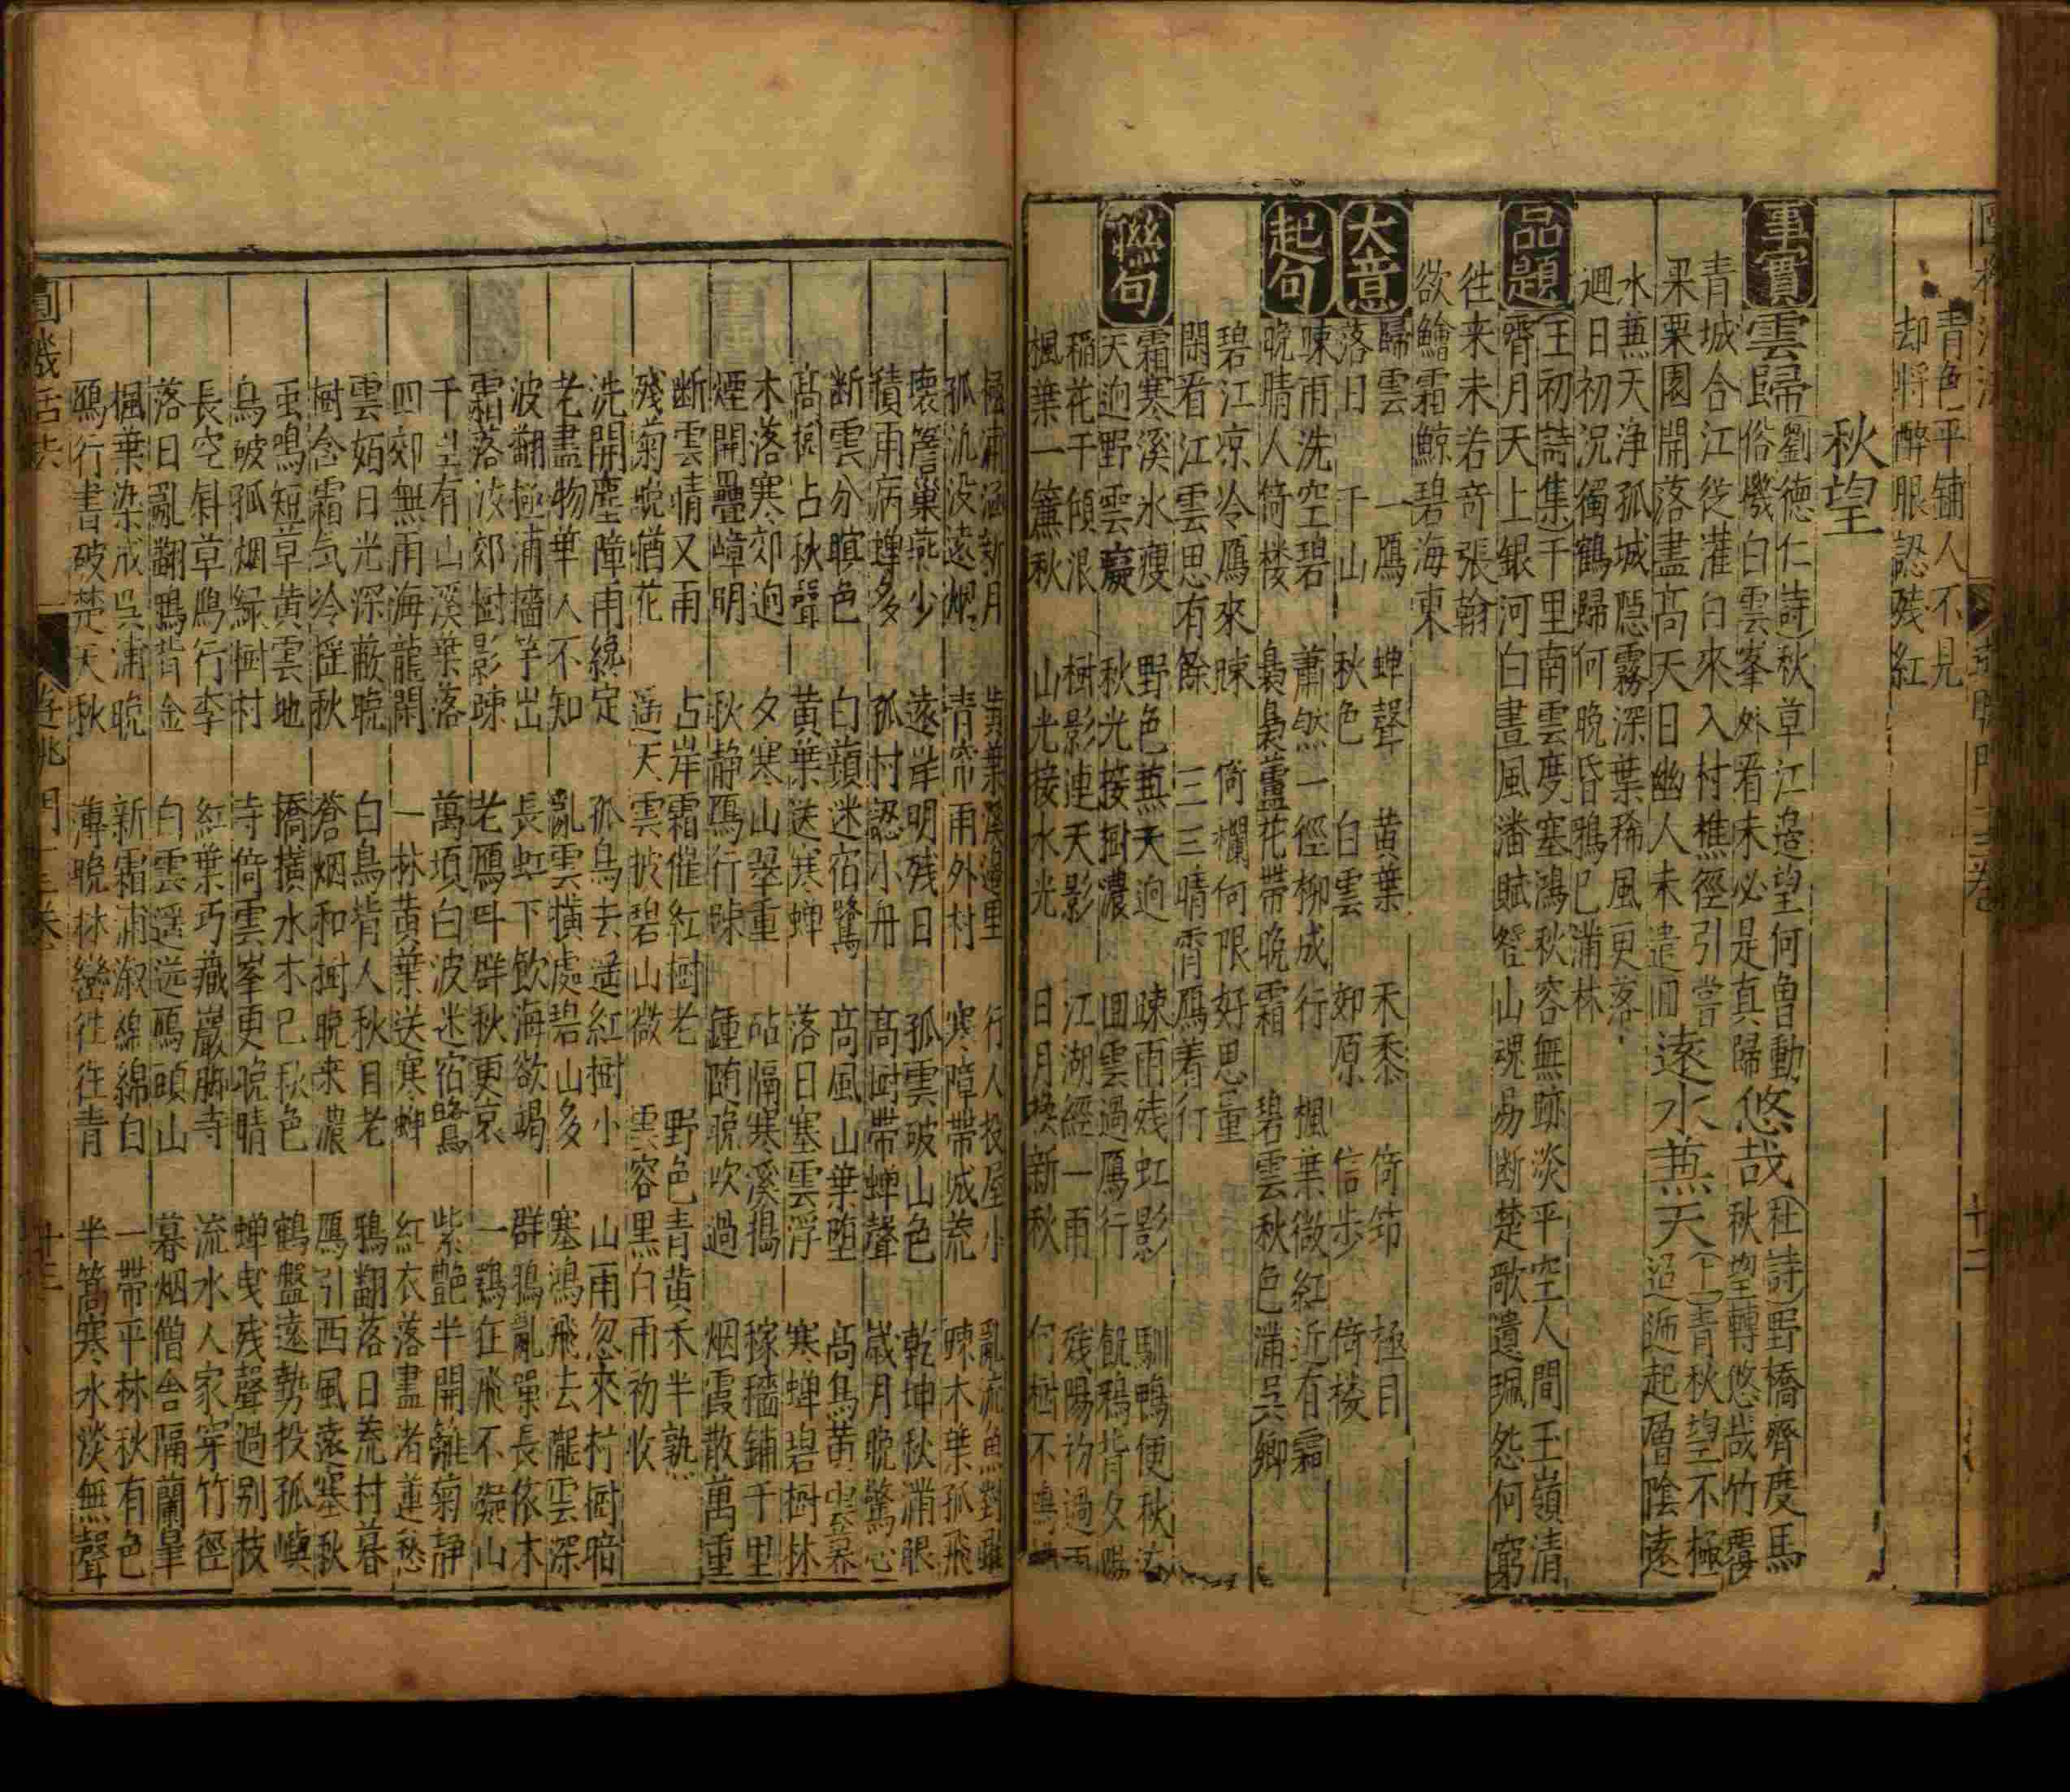 青色平鋪人不見
却將醉眼認殘紅
秋望
事實
雲歸
劉德仁詩
秋草江邉望何曽動
俗機白雲峯外看未必是真歸
悠哉
杜詩
野橋齊度馬
秋望轉悠哉竹覆
青城合江従灌口來入村樵徑引嘗
果栗園開落盡髙天日幽人未遣囬
遠水蕪天
上
青秋望不極
迢逓起曾陰遠
水蕪天浄孤城隠霧深葉稀風更落
逥日初沉獨鶴歸何晩昏鴉已滿林
品題
王初詩集
千里南雲度塞鴻秋容無跡淡平空人間玉嶺清
霄月天上銀河白晝風潘賦登山魂易断楚歌遺珮怨何窮
徃来未若竒張翰
欲鱠霜鯨碧海東
大意
歸雲　一鴈　蝉聲　黄葉　禾黍　倚笻　極目
落日　千山　秋色　白雲　郊原　信步　倚楼
起句
踈雨洗空碧　蕭然一徑柳成行　楓葉微紅近有霜
晩晴人倚楼　裊裊蘆花帶晩霜　碧雲秋色滿呉鄉
碧江凉冷鴈來踈　倚欄何限好思量
閑看江雲思有餘　三三晴霄鴈着行
聯句
霜寒溪水瘦　野色蕪天逈　踈雨殘虹影　馴鴨便秋
天逈野雲　秋光接樹濃　囬雲過鴈行　飢鴉背夕陽
稲花千傾浪　樹影連天影　江湖經一雨　殘陽初過雨
楓葉一簾秋　山光接水光　日月換新秋　何樹不鳴
極浦涵新月　黄葉溪邊里　行人投屋小　亂流魚對
孤汎没遠烟　青帘雨外村　寒障帶城荒　踈木葉孤飛
壊簷巢燕少　遠岸明殘日　孤雲破山色　乾坤秋滿眼
積雨病蝉多　孤村認小舟　髙樹帶蝉聲　歳月晩驚心
断雲分暝色　白蘋迷宿鷺　髙風山葉堕　髙鳥黄雲暮
髙樹占秋聲　黄葉送寒蝉　落日塞雲浮　寒蝉碧樹林
木落寒郊逈　夕寒山翠重　砧隔寒溪搗　稼穡鋪千里
煙開疊嶂明　秋静鴈行踈　鍾随晩吹過　烟霞散萬重
断雲情又雨　占岸霜催紅樹老　野色青黄禾半熟
殘菊晩猶花　遥天雲披碧山微　雲容黒白雨初收
洗開塵障雨纔定　孤鳥去邊紅樹小　山雨忽來村樹暗
老盡物華人不知　亂雲横處碧山多　塞鴻飛去隴雲深
波翻極浦檣竿出　長虹下飲海欲竭　群鴉亂噪長依木
霜落汝郊樹影踈　老鴈叫群秋更哀　一鶚在飛不礙山
千里有山溪葉落　萬頃白波迷宿鷺　紫艶半開籬菊静
四郊無雨海龍閑　一林黄葉送寒蝉　紅衣落盡渚蓮愁
雲妬日光深蔽晩　白鳥背人秋自老　鴉翻落日荒村暮
樹念霜気冷揺秋　蒼烟和樹晩来濃　鴈引西風遠塞秋
虫鳴短草黄雲地　橋横水木已秋色　鶴盤遠勢投孤嶼
鳥破孤烟緑樹村　寺倚雲峯更晩晴　蝉曳殘聲過别枝
長空斜草鴈行李　紅葉巧藏巖脚寺　流水人家穿竹徑
落日亂翻鴉背金　白雲遥逺鴈頭山　暮烟僧舎隔蘭皐
楓葉染成呉浦晩　新霜浦溆綿綿白　一帶平林秋有色
鴈行書破楚天秋　薄晩林巒徃徃青　半篙寒水淡無聲
圓機活法
十二